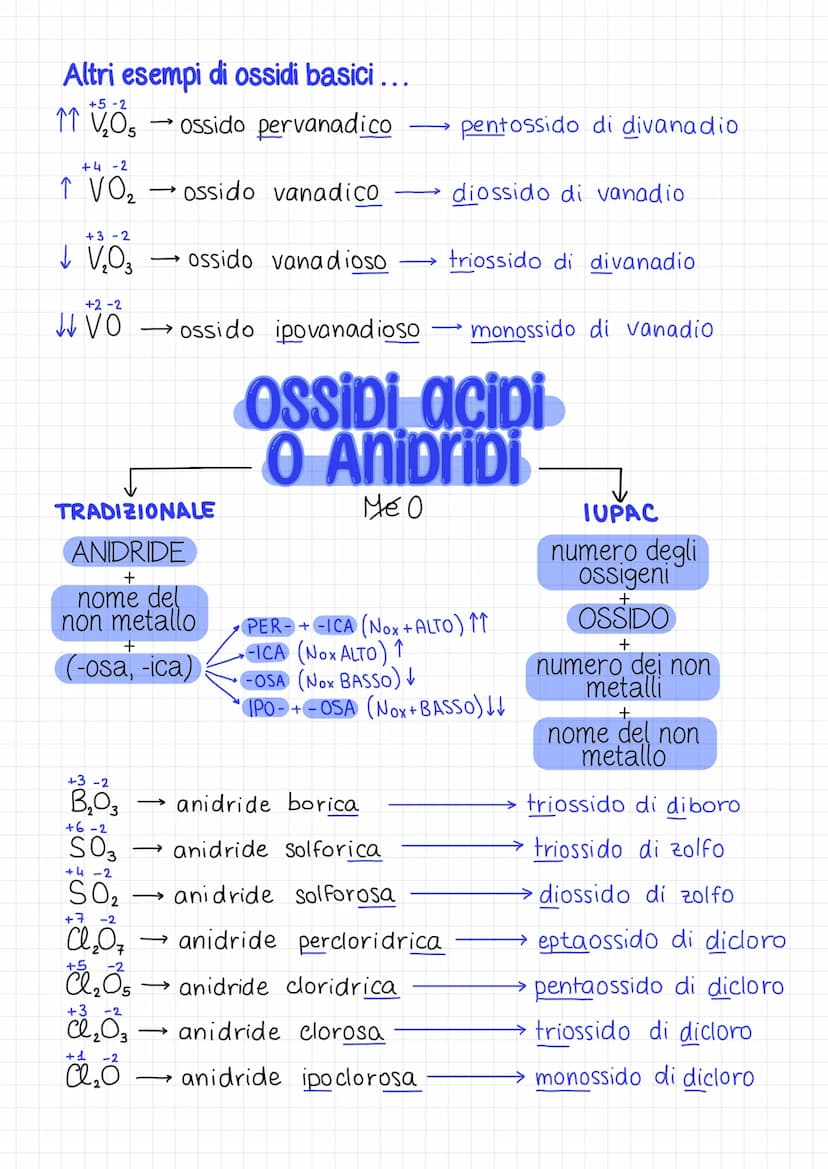 Altri esempi di ossidi basici ...
+5 -2
↑↑ V₂O₅ → ossido pervanadico → pentossido di divanadio
+4 -2
↑ VO₂ → ossido vanadico → diossido di vanadio
+3 -2
↓ V₂O₃ → ossido vanadioso → triossido di divanadio
+2 -2
↓↓ VO → ossido ipovanadioso → monossido di vanadio
OSSIDI ACIDI
O ANIDRIDI
TRADIZIONALE
ANIDRIDE
+
nome del
non metallo
+
(-osa, -ica)
PER- + -ICA (Nox + ALTO) ↑↑
-ICA (Nox ALTO) ↑
-OSA (Nox BASSO) ↓
IPO- + -OSA (Nox + BASSO) ↓↓
Me O
IUPAC
numero degli
ossigeni
+
OSSIDO
+
numero dei non
metalli
+
nome del non
metallo
+3 -2
B₂O₃ → anidride borica → triossido di diboro
+6 -2
SO₃ → anidride solforica → triossido di zolfo
+4 -2
SO₂ → anidride solforosa → diossido di zolfo
+7 -2
Cl₂O₇ → anidride percloridrica → eptaossido di dicloro
+5 -2
Cl₂O₅ → anidride cloridrica → pentaossido di dicloro
+3 -2
Cl₂O₃ → anidride clorosa → triossido di dicloro
+1 -2
Cl₂O → anidride ipoclorosa → monossido di dicloro